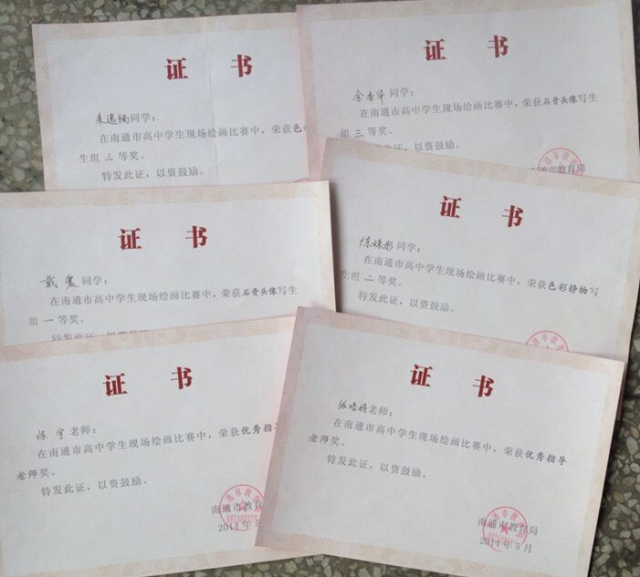 证 书
同学：
在南通市高中学生现场绘画比赛中，荣获色
生组 三 等奖。
特发此证，以资鼓励。
证 书
同学：
在南通市高中学生现场绘画比赛中，荣获石膏头像写生
组 三 等奖。
特发此证，以资鼓励。
市教育局
证 书
戴 同学：
在南通市高中学生现场绘画比赛中，荣获石膏头像写生
组 一 等奖。
特发此证，以资鼓励
证 书
同学：
在南通市高中学生现场绘画比赛中，荣获色彩静物写
生组 二 等奖。
特发此证，以资鼓励。
证 书
陈 宇 老师：
在南通市高中学生现场绘画比赛中，荣获优秀指导
老师奖。
特发此证，以资鼓励。
南通市教育
2014年
证 书
张 老师：
在南通市高中学生现场绘画比赛中，荣获优秀指导
老师奖。
特发此证，以资鼓励。
南通市教育局
2014年5月